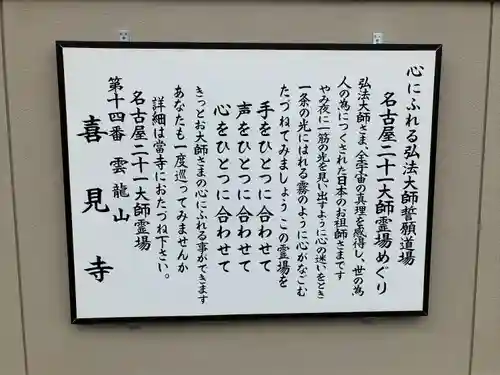 心にふれる弘法大師誓願道場
名古屋二十一大師霊場めぐり
弘法大師さま、全宇宙の真理を感得し、世の為
人の為につくされた日本のお祖師さまです
やみ夜に一筋の光を見い出すように心の迷いをとき
一条の光にはれる霧のように心がなごむ
たづねてみましょう この霊場を
手をひとつに合わせて
声をひとつに合わせて
心をひとつに合わせて
きっとお大師さまの心にふれる事ができます
あなたも一度巡ってみませんか
詳細は當寺におたづね下さい。
名古屋二十一大師霊場
第十四番 雲龍山
喜見寺